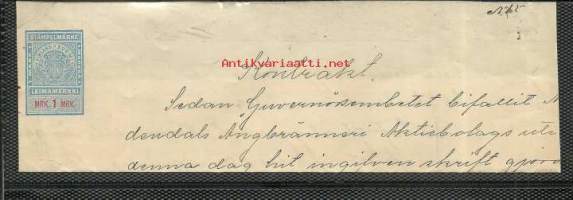 N:o 5
STÄMPELMÄRKE
LEIMAMERKKI
MRK. 1 MRK.
Antikvaari.fi
Kontrakt.
Sedan Guvernörsembetet bifallit
dendals Ångbränneri Aktiebolags
denna dag hit ingifven skrift